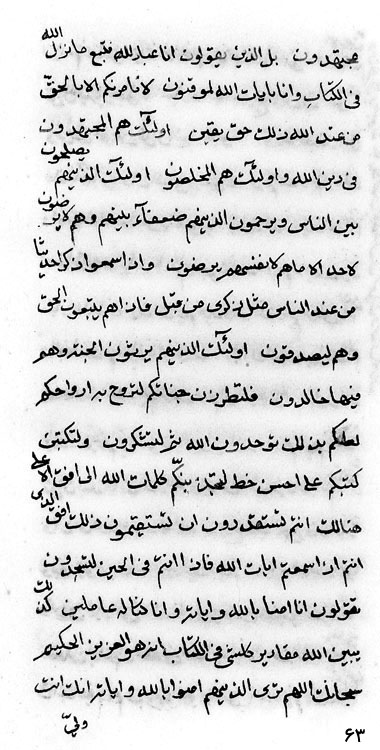 مجتهدون بل الذين يقولون انا عباد لله فنتبع ما نزل الله
فى الكتاب وانا بايات الله لموقنون لا نامرنكم الا بالحق
من عند الله ذلك حق يقين اولئك هم المجتهدون
فى دين الله واولئك هم المخلصون اولئك الذينهم يصلحون
بين الناس ويرحمون الذينهم ضعفاء بينهم وهم لا يرضون
لاحد الا ما هم لانفسهم يرضون واذا سمعوا ذكرا حديثا
من عند الناس مثل ذكرى من قبل فاذا هم يتبعون الحق
وهم ليصدقون اولئك الذينهم يرثون الجنة وهم
فيها خالدون فلتطرزن جناتكم لتروح به ارواحكم
لعلكم بذلك توحدون الله ثم لتشكرون ولتكتبن
كتبكم على احسن خط لتجذبنكم كلمات الله الى افق الاعلى
هنالك انتم تستقدرون ان تستقيمون ذلك افق الذى
انتم اذا سمعتم ايات الله فاذا انتم فى الحين لتسجدون
تقولون انا امنا بالله واياته وانا كنا له عاملين كذلك
يبين الله مقادير كلشئ فى الكتاب انه هو العزيز الحكيم
سبحانك اللهم ترى الذينهم امنوا بالله واياته انك انت
ولى
٦٣